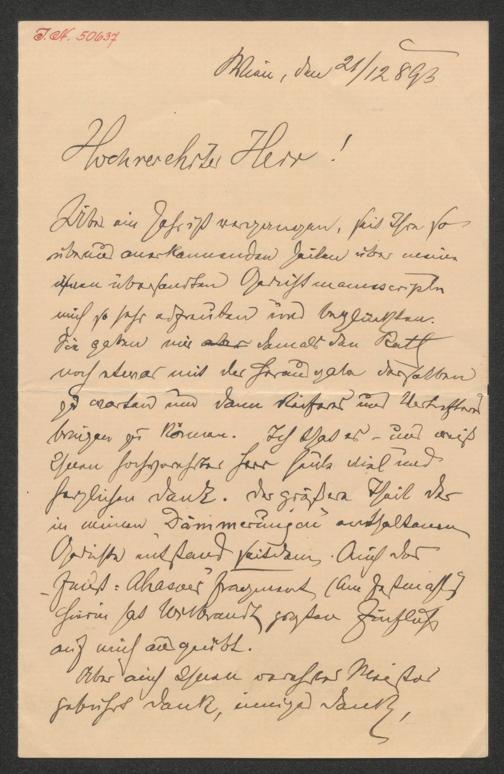 I.N. 50637
Wien, den 21/12 893
Hochverehrter Herr!
Über ein Jahr ist vergangen, seit Ihre so
überaus anerkennenden Zeilen über meine
Ihnen übersandten Gedichtmanuscripte
mich so sehr erfreuten und beglückten.
Sie gaben mir aber damals den Rath
noch etwas mit der Herausgabe derselben
zu warten und dann Reiferes und Werthvolleres
bringen zu können. Ich that es – und weiß
Ihnen hochverehrter Herr heute viel und
herzlichen Dank. Der größere Theil der
in meinen "Dämmerungen" enthaltenen
Gedichte entstand seitdem. Auch der
"Faust-Ahasver" Fragment
hierin hat Wilbrandt großen Einfluß
auf mich ausgeübt.
Aber auch Ihnen verehrter Meister
gebührt Dank, inniger Dank,